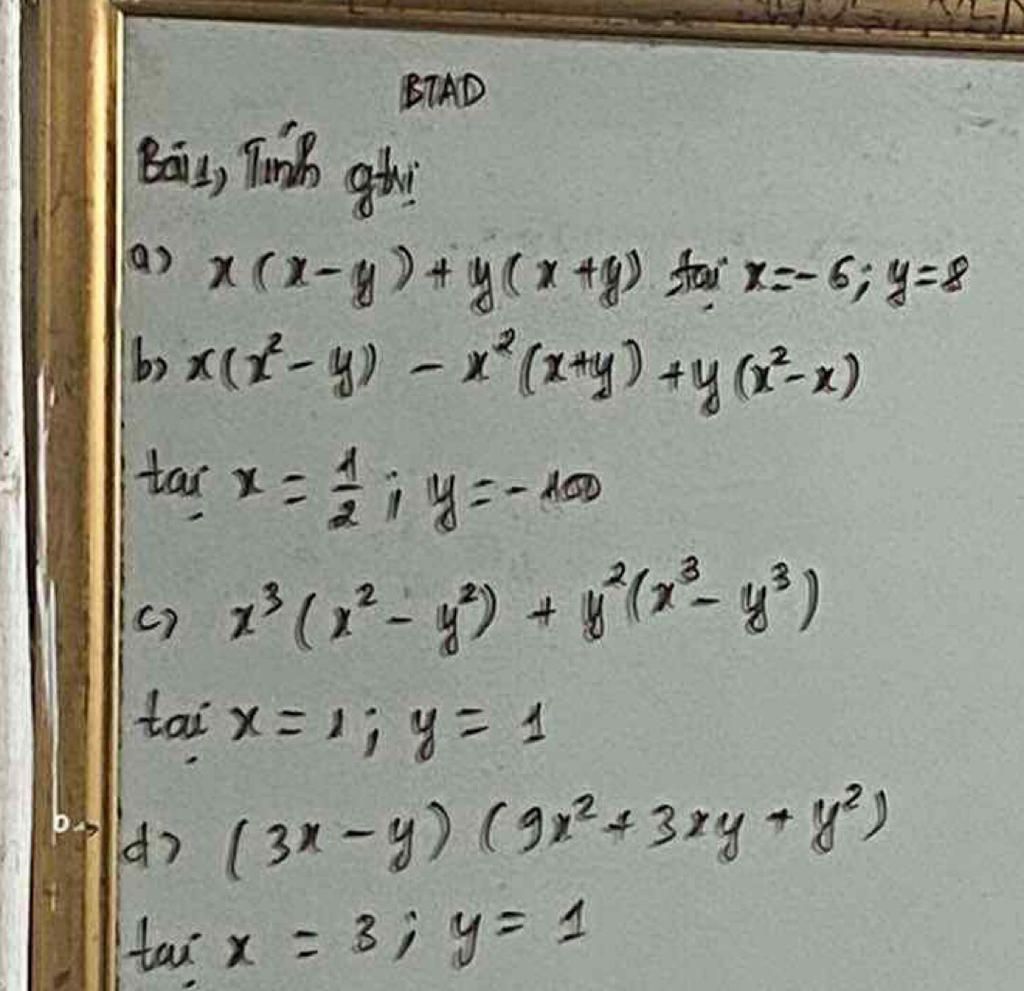 BTAD
Bài 1, Tính gtrị
a) x(x-y)+y(x+y) tại x=-6; y=8
b) x(x²-y) - x²(x+y) + y(x²-x)
tại x = 1/2; y = -100
c) x³(x²-y²) + y²(x³-y³)
tại x = 1; y = 1
d) (3x-y)(9x²+3xy+y²)
tại x = 3; y = 1